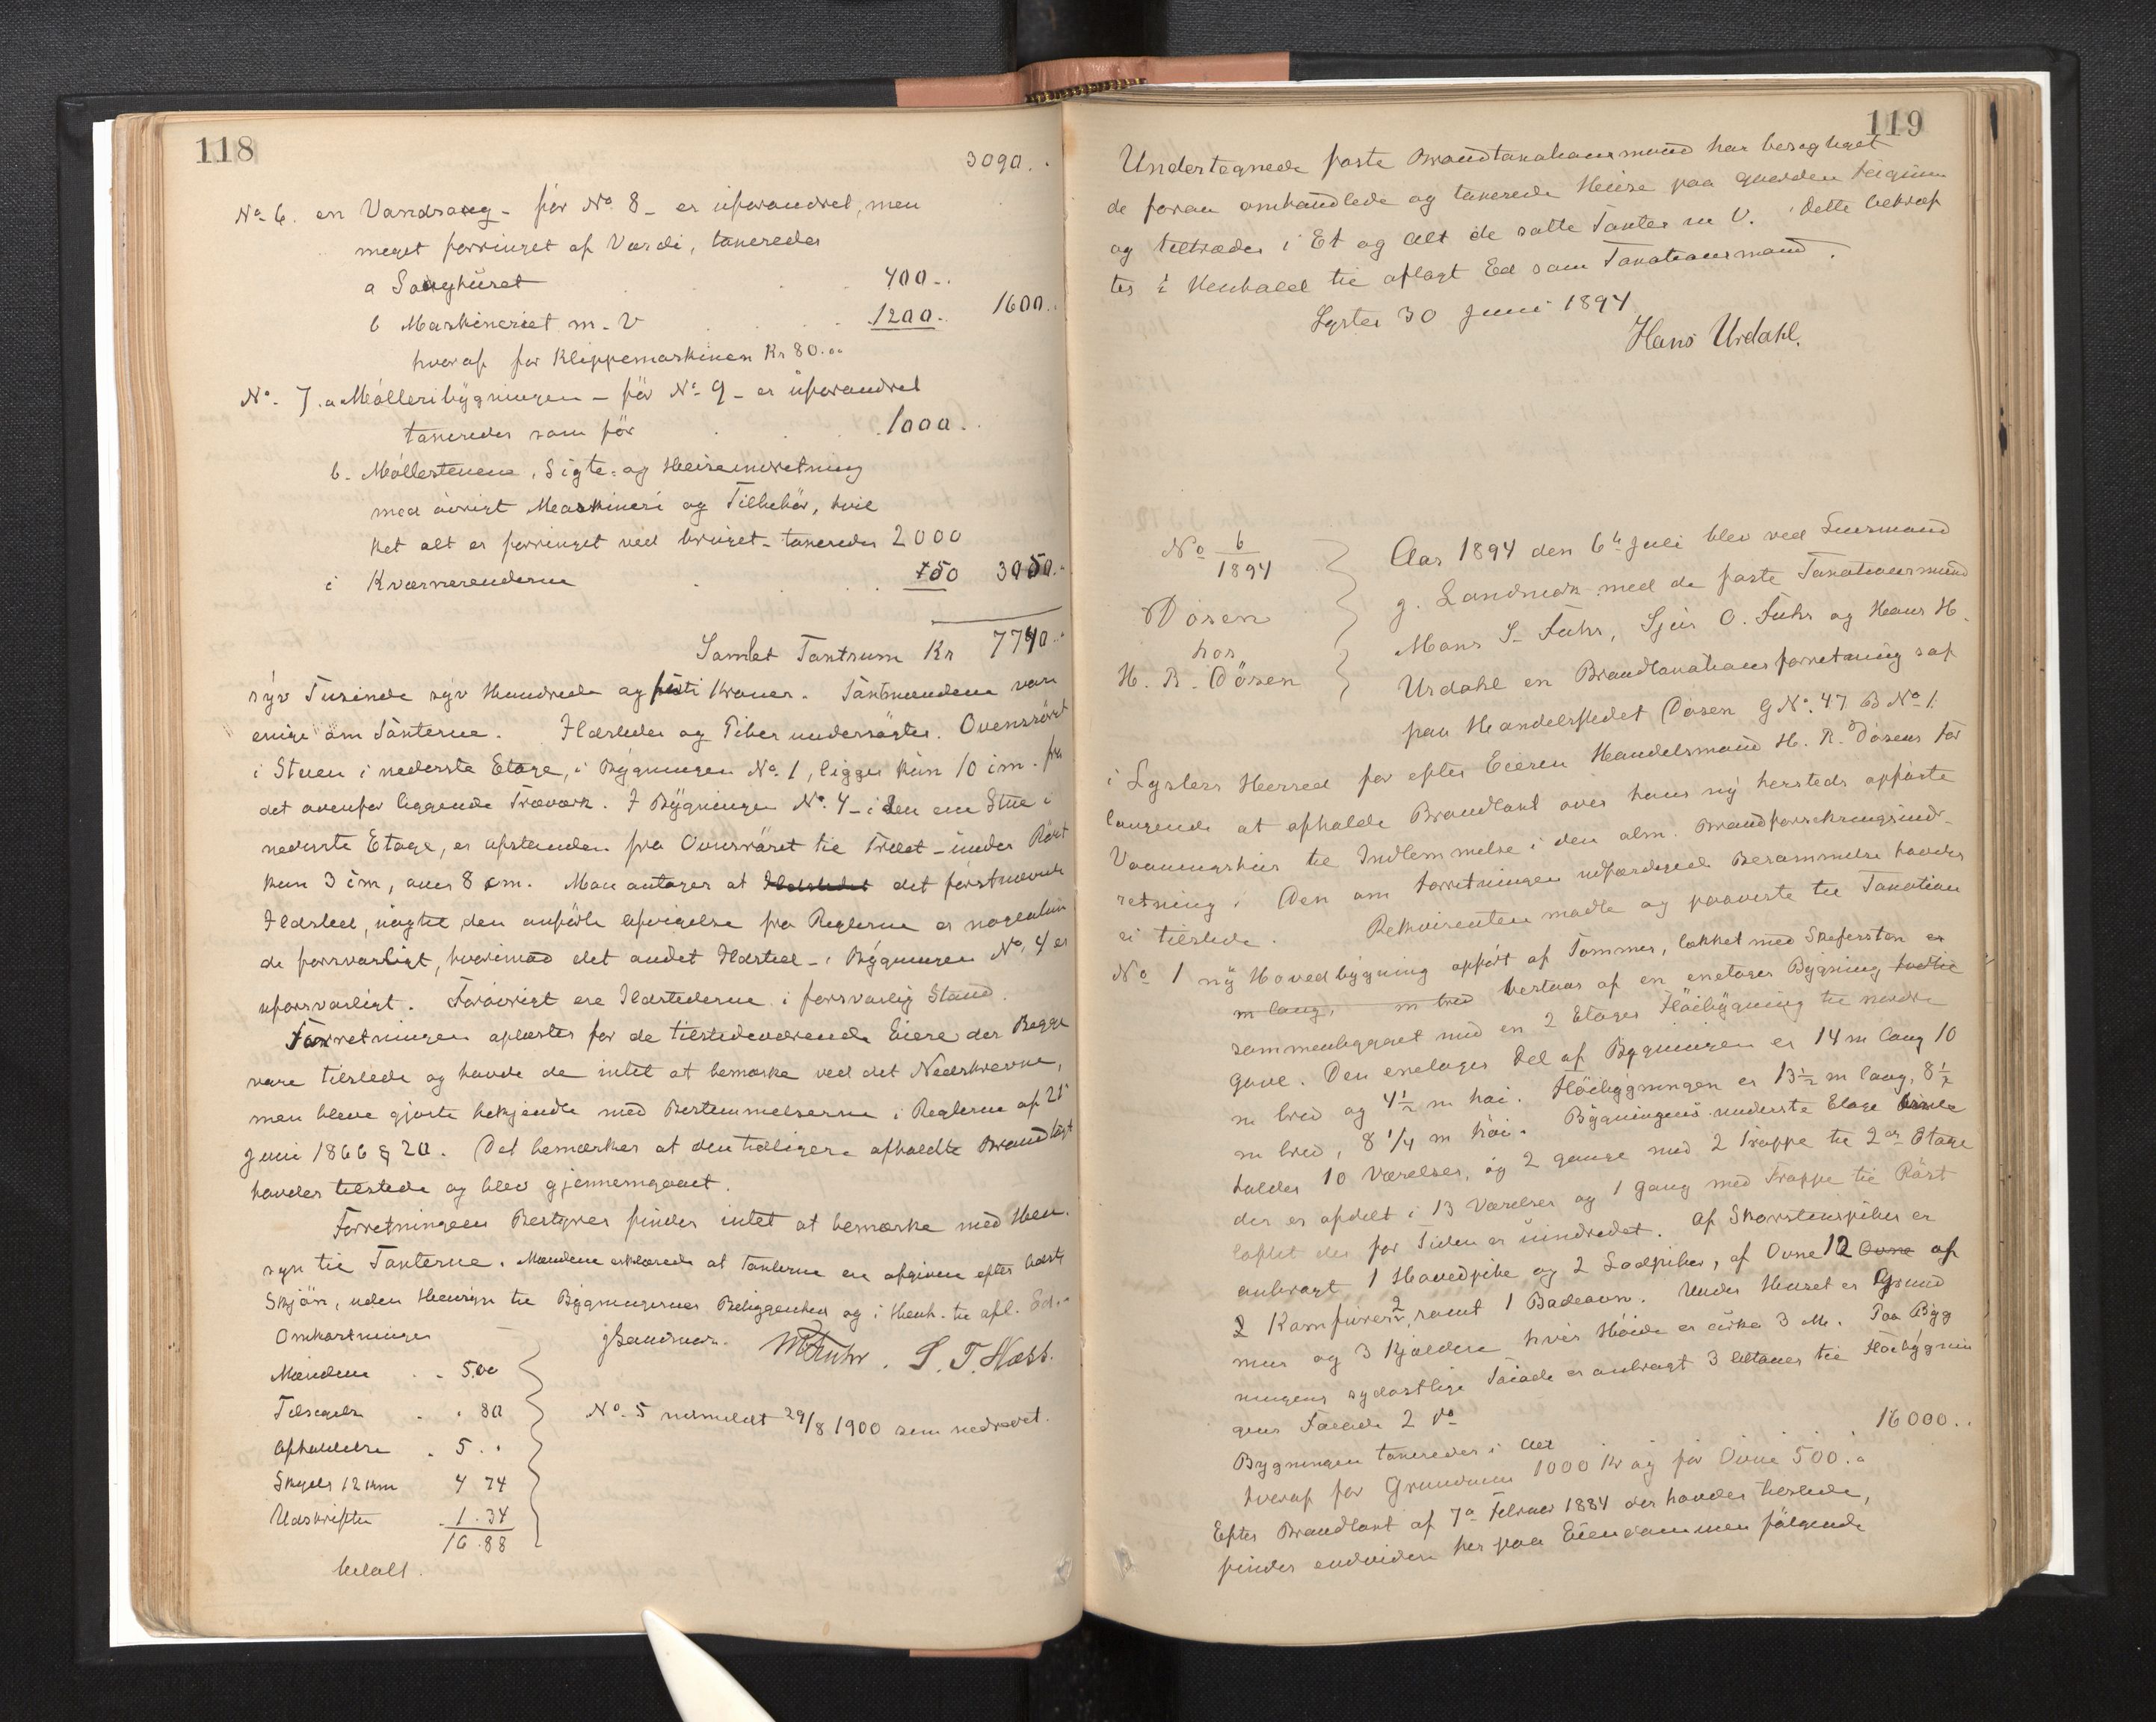 118
3090..
No 6. en Vandsaug - før No 8 - er uforandret, men
meget forringet af Værdi, taxeredes
a Saughuset 400..
b Maskineriet m. V 1200.. 1600..
hvoraf for Klippemaskinen Kr 80.00
No. 7. a Mølleribygningen - før No 9 - er uforandret
taxeredes som før 1000..
b. Møllestenene, Sigte- og Heiseindretning
med øvrigt Maskineri og Tilbehør, hvil
ket alt er forringet ved bruget - taxeredes 2000
i Kværnerenderne 50 3050..
Samlet Taxtsum Kr 7740..
syv Tusinde syv Hundrede og firti Kroner. Taxtmændene vare
enige om Taxterne. Ildsteder og Piber undersøgtes. Ovensrøret
i Stuen i nederste Etage, i Bygningen No. 1, ligger kun 10 cm. fra
det ovenfor liggende Træværk. I Bygningen No. 4 - i den ene Stue i
nederste Etage, er afstanden fra Ovnsrøret til Træet - under Røret
kun 3 cm, over 8 cm. Man antager at Ildstedet det førstnævnte
Ildsted, uagtet den anførte afvigelse fra Reglerne er nogenlun
de forsvarligt, hvorimod det andet Ildsted - i Bygningen No. 4 er
uforsvarligt. Forøvrigt ere Ildstederne i forsvarlig Stand.
Forretningen oplæstes for de tilstedeværende Eiere der Begge
vare tilstede og havde de intet at bemærke ved det Nedskrevne,
men bleve gjorte bekjendte med Bestemmelserne i Reglerne af 21
Juni 1866 § 20. Det bemærkes at den tidligere afholdte Brandtaxt
havdes tilstede og blev gjennemgaaet.
Forretningens Bestyrer finder intet at bemærke med Hen-
syn til Taxterne. Mændene erklærede at taxterne ere afgivne efter bedste
Skjøn, uden Hensyn til Bygningernes Beliggenhed og i Henh. til afl. Ed.-
Omkostninger
Mændene 5.00
Tilsigelse . 80
Afholdelse . 5..
Skyds 12 km 4 74
Udskrifter 1.34
16.88
betalt.
J Landmark. M Fuhr. S. T. Hæst.
No. 5 udmeldt 29/8 1900 som nedrevet.
119
Undertegnede faste Brandtaxationsmand har besigtiget
de foran omhandlede og taxerede Huse paa gaarden
og tiltræder i Et og Alt de satte Taxter m V. Dette bekræf
tes i Henhold til aflagt Ed som Taxationsmand.
Lyster 30 Juni 1894
Hans Urdahl.
No 6/1894
Døsen
hos
H. R. Døsen
Aar 1894 den 6te Juli blev ved Lensmand
J. Landmark med de faste Taxationsmænd
Mons S. Fuhr, Sjur O. Fuhr og Hans H.
Urdahl en Brandtaxationsforretning sat
paa Handelsstedet Døsen G No. 47 B No 1.
i Lysters Herred for efter Eieren Handelsmand H. R. Døsens For
langende at afholde Brandtaxt over hans ny hersteds opførte
Vaaningshus til Indlemmelse i den alm. Brandforsikringsindr-
retning. Den om Forretningen udfærdigede Berammelse havdes
ei tilstede. Rekvirenten mødte og paaviste til Taxation
No 1 ny Hovedbygning opført af Tømmer, takket med Skifersten er
m lang, m bred bestaar af en enetages Bygning
sammenbygget med en 2 Etages Høibygning til nordre
Gavl. Den enetages Del af Bygningen er 14 m lang 10
m bred og 4 1/2 m høi. Høibygningen er 13 1/2 m lang, 8 1/2
m bred, 8 1/4 m høi. Bygningens underste Etage
holder 10 Værelser, og 2 gange med 2 Trappe til 2den Etage
der er afdelt i 13 Værelser og 1 Gang med Trappe til Røst
loftet der for Tiden er uindredet. Af Skorstenspiber er
anbragt 1 Hovedpibe og 2 Lodpiber, af Ovne 12 Ovne af
2 Komfurer, samt 1 Badeovn. Under Huset er Grund
mur og 3 Kjældere hvis Høide er cirka 3 M. Paa Byg
ningens sydøstlige Facade er anbragt 3 altaner til Høibygnin
gens Facade 2 do
Bygningen taxeredes i alt 16000..
hvoraf for Grundmur 1000 Kr og for Ovne 500..
Efter Brandtaxt af 7de Februar 1884 der havdes tilstede,
findes endvidere her paa Eiendommen følgende